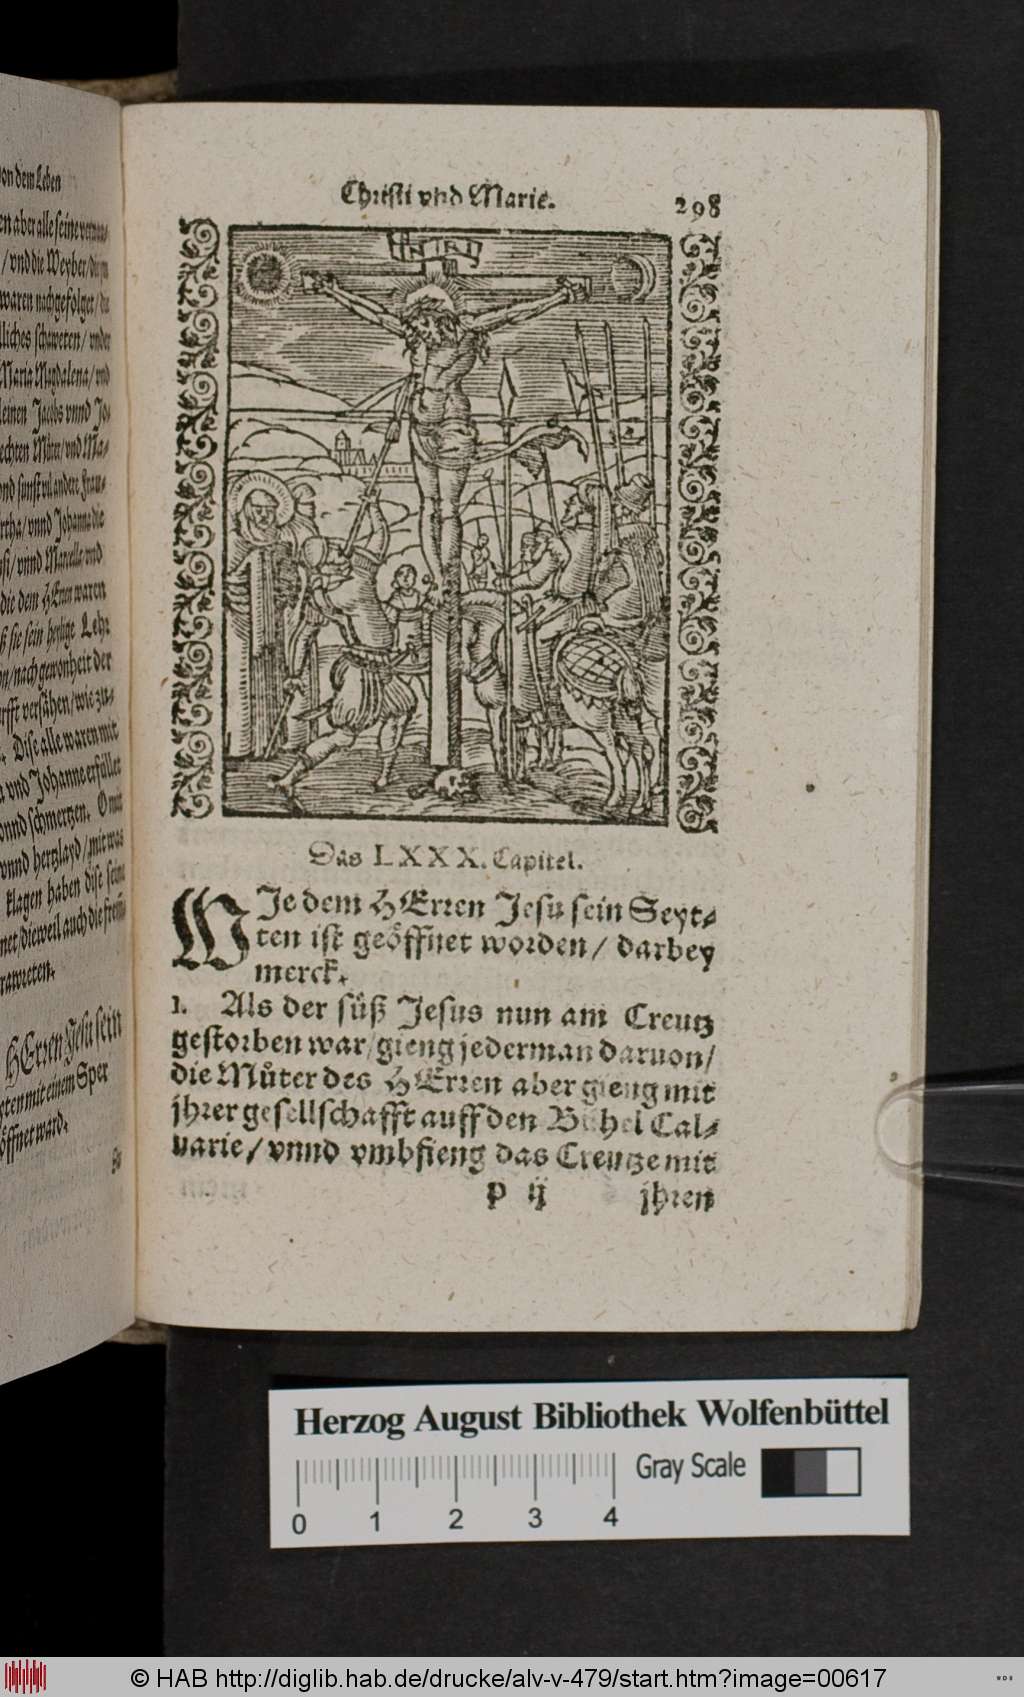 von dem Leben
en aber alle seine
/ vnd die Weyber/
waren nachgefolget/ die
liches schweten/ vnder
Maria Magdalena/ vnd
leinen Jacobs vnnd Jo-
echten Můter/ vnd Ma-
vnd sunst vil andere Fraw-
rtha/ vnnd Johanna die
vnnd Marcella/ vnd
die dem HErren waren
sie sein heylige Lehr
nach gewonheit der
rfft versåhen/ wie zu-
Dise alle waren mit
vnd Johanne erfüllet
vnnd schmertzen. O mit
vnnd hertzlayd/ mit was
klagen haben dise seine
net/ dieweil auch die
HErren Jesu sein
yten mit einem Sper
öffnet ward.
Christi vnd Marie.
298
INRI
Das LXXX. Capitel.
WJe dem HErren Jesu sein Seyt-
ten ist geöffnet worden/ darbey
merck.
1. Als der süß Jesus nun am Creutz
gestorben war/ gieng jederman daruon/
die Můter des HErren aber gieng mit
jhrer gesellschafft auff den Bühel Cal-
uarie/ vnnd vmbfieng das Creutze mit
p ij
jhren
Herzog August Bibliothek Wolfenbüttel
Gray Scale
0 1 2 3 4
© HAB http://diglib.hab.de/drucke/alv-v-479/start.htm?image=00617